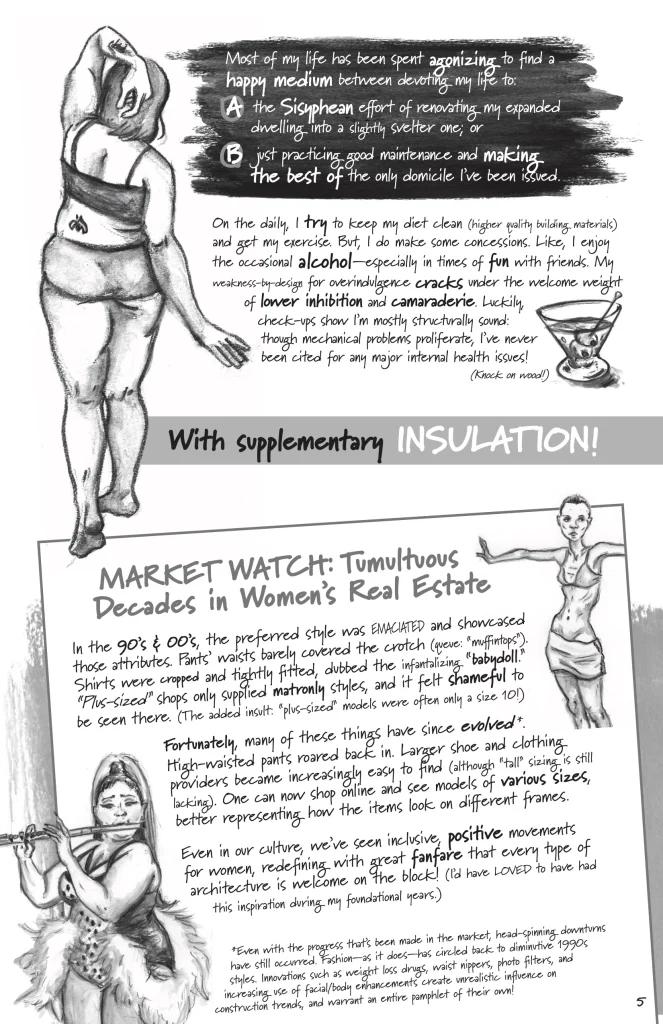 Most of my life has been spent agonizing to find a
happy medium between devoting my life to:
A the Sisyphean effort of renovating my expanded
dwelling into a slightly svelter one; or
B just practicing good maintenance and making
the best of the only domicile I've been issued.
On the daily, I try to keep my diet clean (higher quality building materials)
and get my exercise. But, I do make some concessions. Like, I enjoy
the occasional alcohol—especially in times of fun with friends. My
weakness-by-design for overindulgence cracks under the welcome weight
of lower inhibition and camaraderie. Luckily,
check-ups show I'm mostly structurally sound:
though mechanical problems proliferate, I've never
been cited for any major internal health issues!
(Knock on wood!)
With supplementary INSULATION!
MARKET WATCH: Tumultuous
Decades in Women's Real Estate
In the 90's & 00's, the preferred style was EMACIATED and showcased
those attributes. Pants' waists barely covered the crotch (queue: "muffintops").
Shirts were cropped and tightly fitted, dubbed the infantalizing "babydoll."
"Plus-sized" shops only supplied matronly styles, and it felt shameful to
be seen there. (The added insult: "plus-sized" models were often only a size 10!)
Fortunately, many of these things have since evolved*.
High-waisted pants roared back in. Larger shoe and clothing
providers became increasingly easy to find (although "tall" sizing is still
lacking). One can now shop online and see models of various sizes,
better representing how the items look on different frames.
Even in our culture, we've seen inclusive, positive movements
for women, redefining with great fanfare that every type of
architecture is welcome on the block! (I'd have LOVED to have had
this inspiration during my foundational years.)
*Even with the progress that's been made in the market, head-spinning downturns
have still occurred. Fashion—as it does—has circled back to diminutive 1990s
styles. Innovations such as weight loss drugs, waist nippers, photo filters, and
increasing use of facial/body enhancements create unrealistic influence on
construction trends, and warrant an entire pamphlet of their own!
5